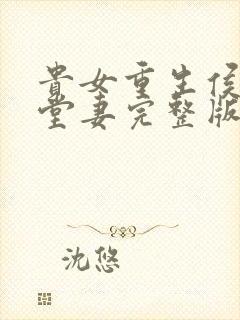 貴女重生侯
堂妻完整版
沈悠